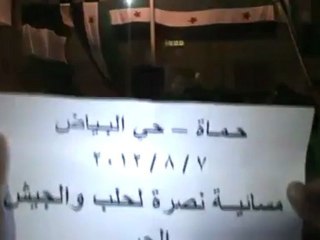 حماة - حي البياض
٢٠١٢/٨/٧
مسائية نصرة لحلب والجيش
الحر